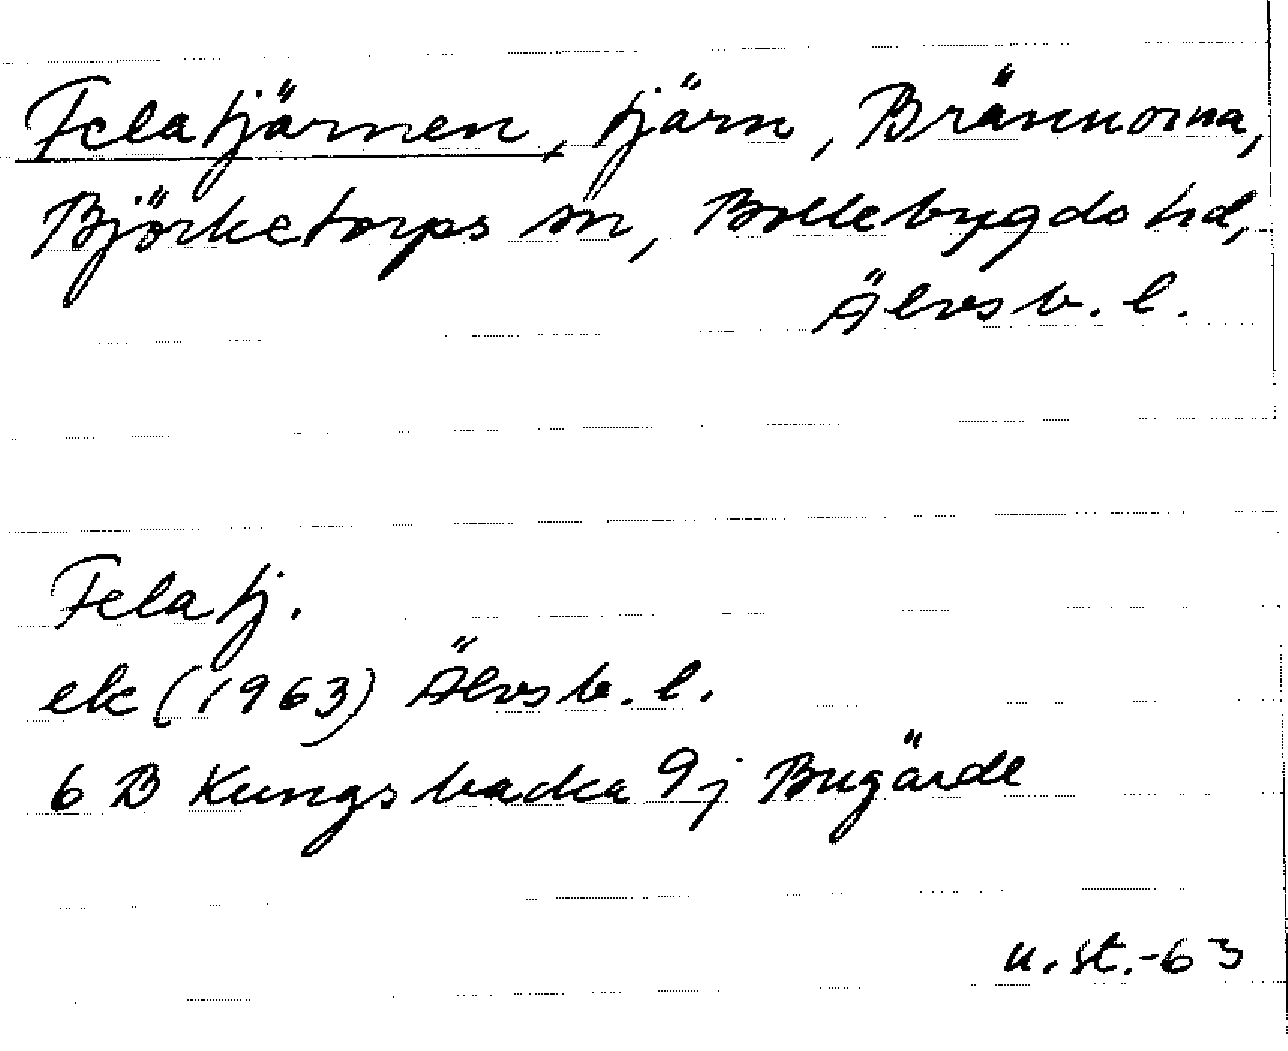 Felatjärnen, tjärn, Brännorna,
Björketorps sn, Bollebygds hd,
Älvsb. l.
Felatj.
ek (1963) Älvsb. l.
6 B Kungsbacka 9j Bugärde
u. st. -63